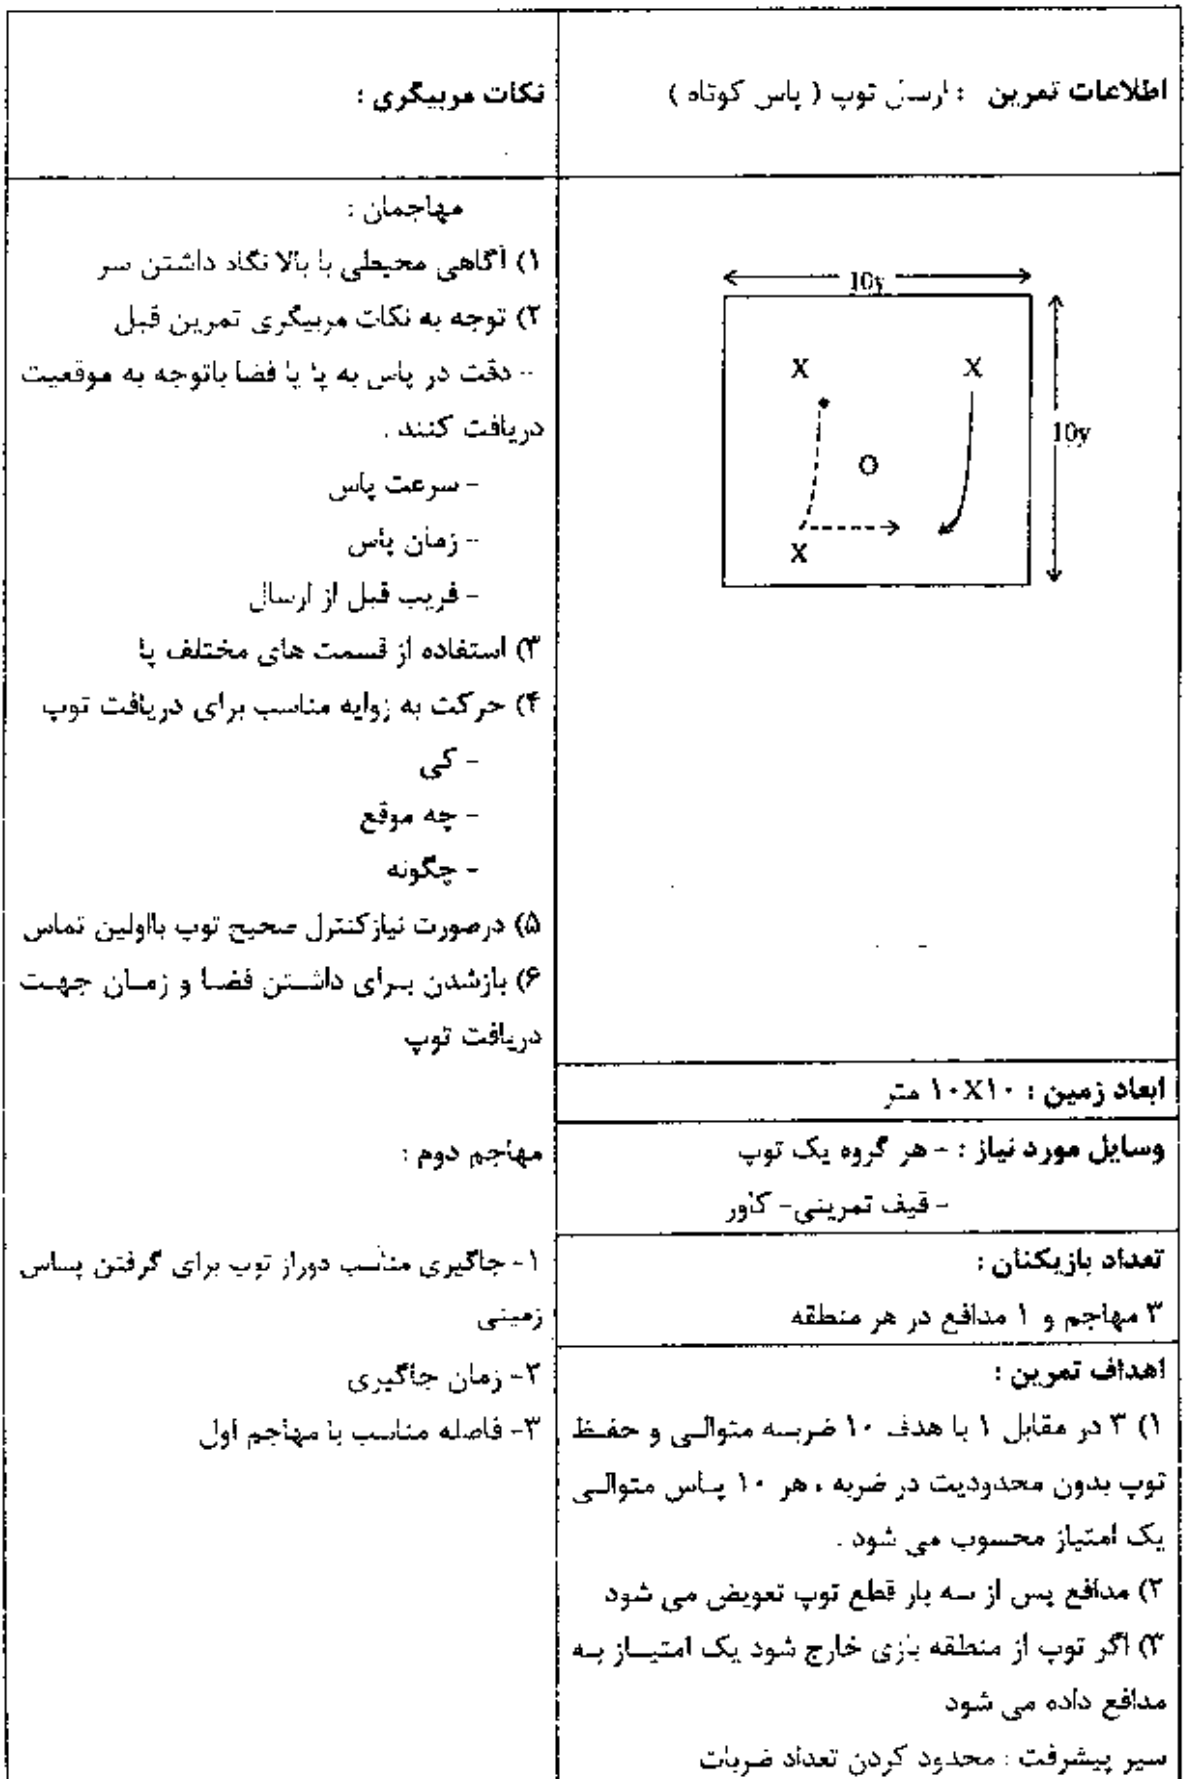 اطلاعات تمرین : ارسال توپ ( پاس کوتاه )
10y
X X
10y
O
X
ابعاد زمین : ۱۰X۱۰ متر
وسایل مورد نیاز : - هر گروه یک توپ
- قیف تمرینی- کاور
تعداد بازیکنان :
۳ مهاجم و ۱ مدافع در هر منطقه
اهداف تمرین :
۱) ۳ در مقابل ۱ با هدف ۱۰ ضربه متوالی و حفظ
توپ بدون محدودیت در ضربه ، هر ۱۰ پاس متوالی
یک امتیاز محسوب می شود .
۲) مدافع پس از سه بار قطع توپ تعویض می شود
۳) اگر توپ از منطقه بازی خارج شود یک امتیاز به
مدافع داده می شود
سیر پیشرفت : محدود کردن تعداد ضربات
نکات مربیگری :
مهاجمان :
۱) آگاهی محیطی با بالا نگاه داشتن سر
۲) توجه به نکات مربیگری تمرین قبل
- دقت در پاس به پا یا فضا باتوجه به موقعیت
دریافت کنند .
- سرعت پاس
- زمان پاس
- فریب قبل از ارسال
۳) استفاده از قسمت های مختلف پا
۴) حرکت به زوایه مناسب برای دریافت توپ
- کی
- چه موقع
- چگونه
۵) درصورت نیازکنترل صحیح توپ بااولین تماس
۶) بازشدن برای داشتن فضا و زمان جهت
دریافت توپ
مهاجم دوم :
۱- جاگیری مناسب دوراز توپ برای گرفتن پاس
زمینی
۲- زمان جاگیری
۳- فاصله مناسب با مهاجم اول